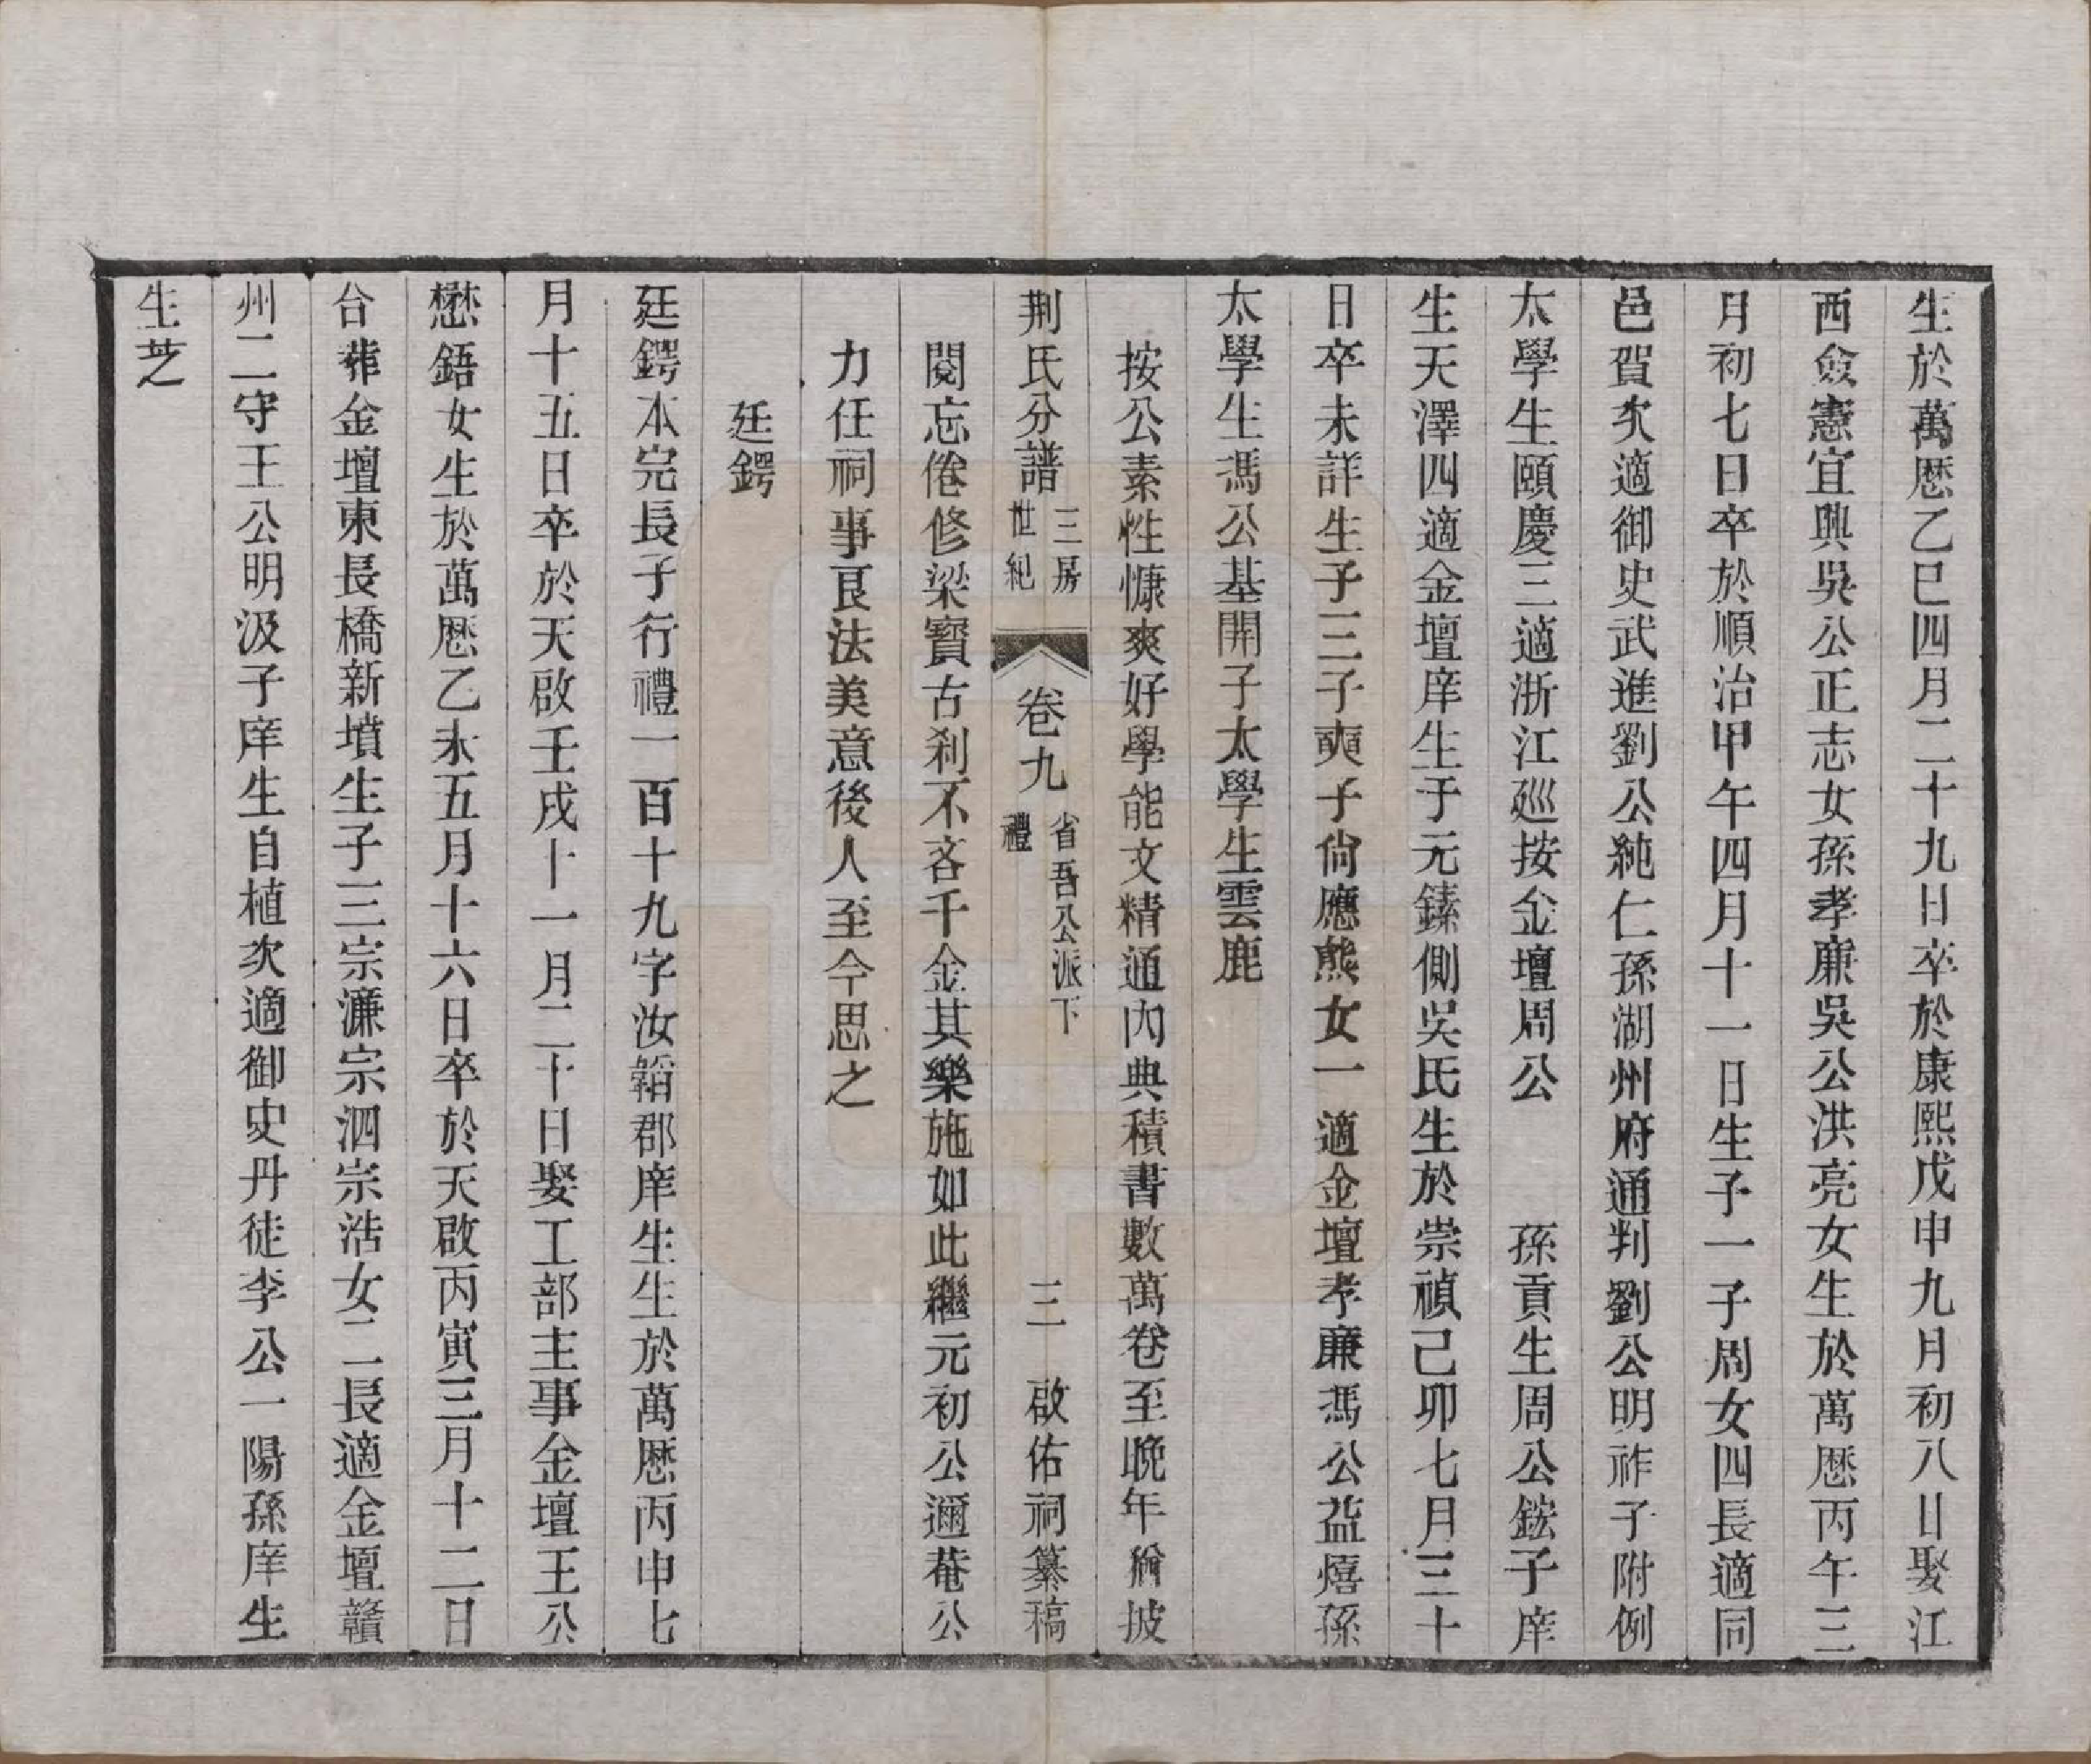 生於萬厯乙巳四月二十九日卒於康熙戊申九月初八日娶江
西僉憲宜興吳公正志女孫孝廉吳公洪亮女生於萬厯丙午三
月初七日卒於順治甲午四月十一日生子一子周女四長適同
邑賀次適御史武進劉公純仁孫湖州府通判劉公明祚子附例
太學生頤慶三適浙江廵按金壇周公　　孫貢生周公鋐子庠
生天澤四適金壇庠生于元鎍側吳氏生於崇禎己卯七月三十
日卒未詳生子三子奭子尙應熊女一適金壇孝廉馮公益熺孫
太學生馮公基開子太學生雲鹿
按公素性慷爽好學能文精通內典積書數萬卷至晚年猶披
荆氏分譜 三房世紀 卷九 省吾公派下禮 三 啟佑祠纂稿
閱忘倦修梁寶古刹不吝千金其樂施如此繼元初公邇菴公
力任祠事艮法美意後人至今思之
廷鍔
廷鍔本完長子行禮一百十九字汝韜郡庠生生於萬厯丙申七
月十五日卒於天啟壬戌十一月二十日娶工部主事金壇王公
懋錕女生於萬厯乙未五月十六日卒於天啟丙寅三月十二日
合葬金壇東長橋新墳生子三宗濂宗泗宗浩女二長適金壇贛
州二守王公明汲子庠生自植次適御史丹徒李公一陽孫庠生
生芝